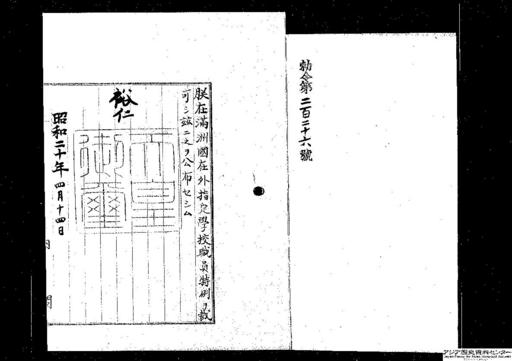 勅令第二百二十六號
朕在滿洲國在外指定學校職員特例ヲ裁
可シ茲ニ之ヲ公布セシム
裕仁
天皇御璽
昭和二十年四月十四日
内閣
アジア歴史資料センター